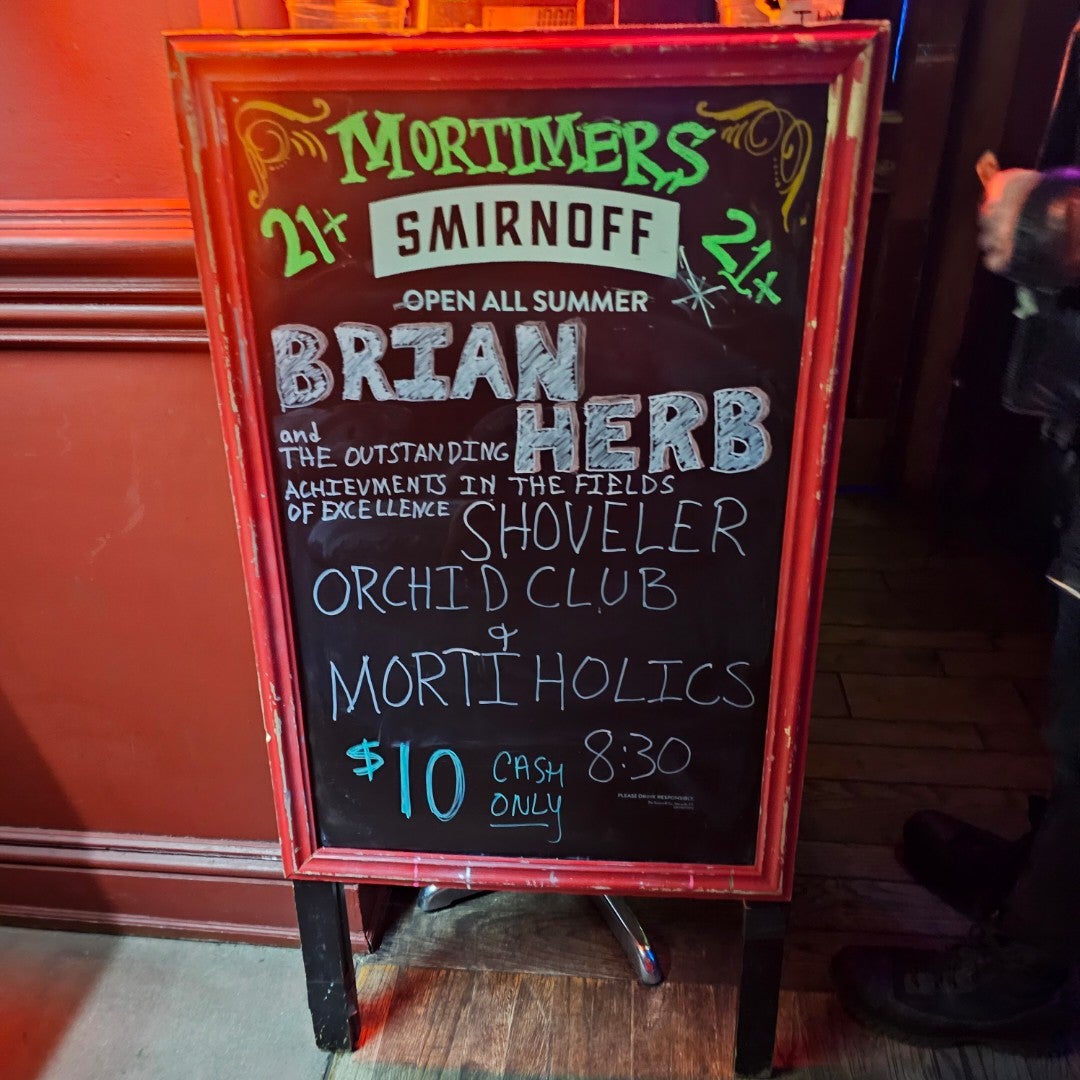 MORTIMERS
21+
SMIRNOFF
21+
OPEN ALL SUMMER
BRIAN
HERB
and
THE OUTSTANDING
ACHIEVMENTS IN THE FIELDS
OF EXCELLENCE
SHOVELER
ORCHID CLUB
&
MORTIHOLICS
$10 CASH ONLY
8:30
PLEASE DRINK RESPONSIBLY